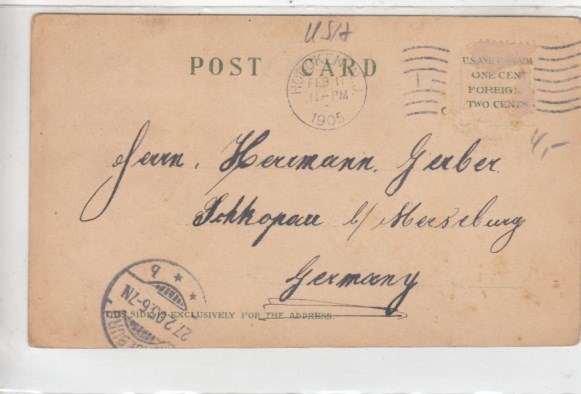 USA
POST CARD
HOBOKEN, N.J.
FEB 1
11-PM
1905
U.S. AND CANADA
ONE CENT
FOREIGN
TWO CENTS
4,-
Herrn. Herrmann. Gerber
Schkopau b/ Merseburg
Germany
THIS SIDE IS EXCLUSIVELY FOR THE ADDRESS.
* * b
27.2.05.6-7N